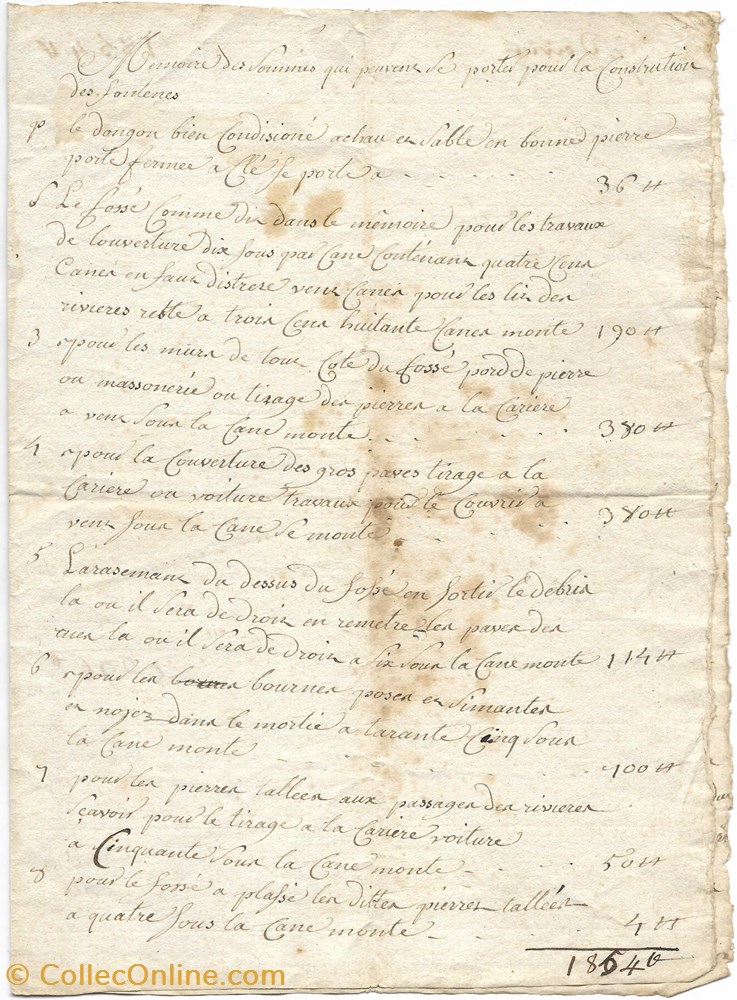 Memoire des Sommes qui peuvent Se porter pour la Constrution
des fontenes
p le dongon bien Condisioné achau et Sable en bonne pierre
porte fermee a Clé Se porte a 36 tt
6 Le fossé Comme dit dans le mémoire pour les travaux
de louverture dix Sous par Cane Contenant quatre Cens
Canes en faut distrere vent Canes pour les lis des
rivieres reste a trois Cens huitante Canes monte 190 tt
3 pour les murs de tout Coté du fossé port de pierre
ou massonerie ou tirage des pierres a la Cariere
a vent Sous la Cane monte 380 tt
4 pour la Couverture des gros paves tirage a la
Cariere ou voiture travaux pour le Couvrir a
vent Sous la Cane Se monte 380 tt
5 Larasemant du dessus du fossé en Sortir le debris
la ou il Sera de droit en remetre les paves des
rues la ou il Sera de droit a Six Sous la Cane monte 114 tt
6 pour les bournes poses et Simantes
et nojez dans le mortie a tarante Cinq Sous
la Cane monte 700 tt
7 pour les pierres tallees aux passages des rivieres
Sçavoir pour le tirage a la Cariere voiture
a Cinquante Sous la Cane monte 50 tt
8 pour le fossé a plassé les dittes pierres tallées
a quatre Sous la Cane monte 4 tt
1854 tt
© CollecOnline.com